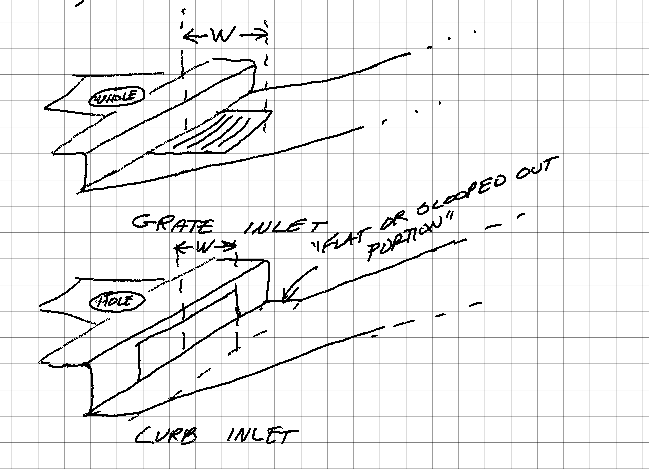 W
WHOLE
GRATE INLET
"FLAT OR SLOOPED OUT
PORTION"
W
HOLE
CURB INLET